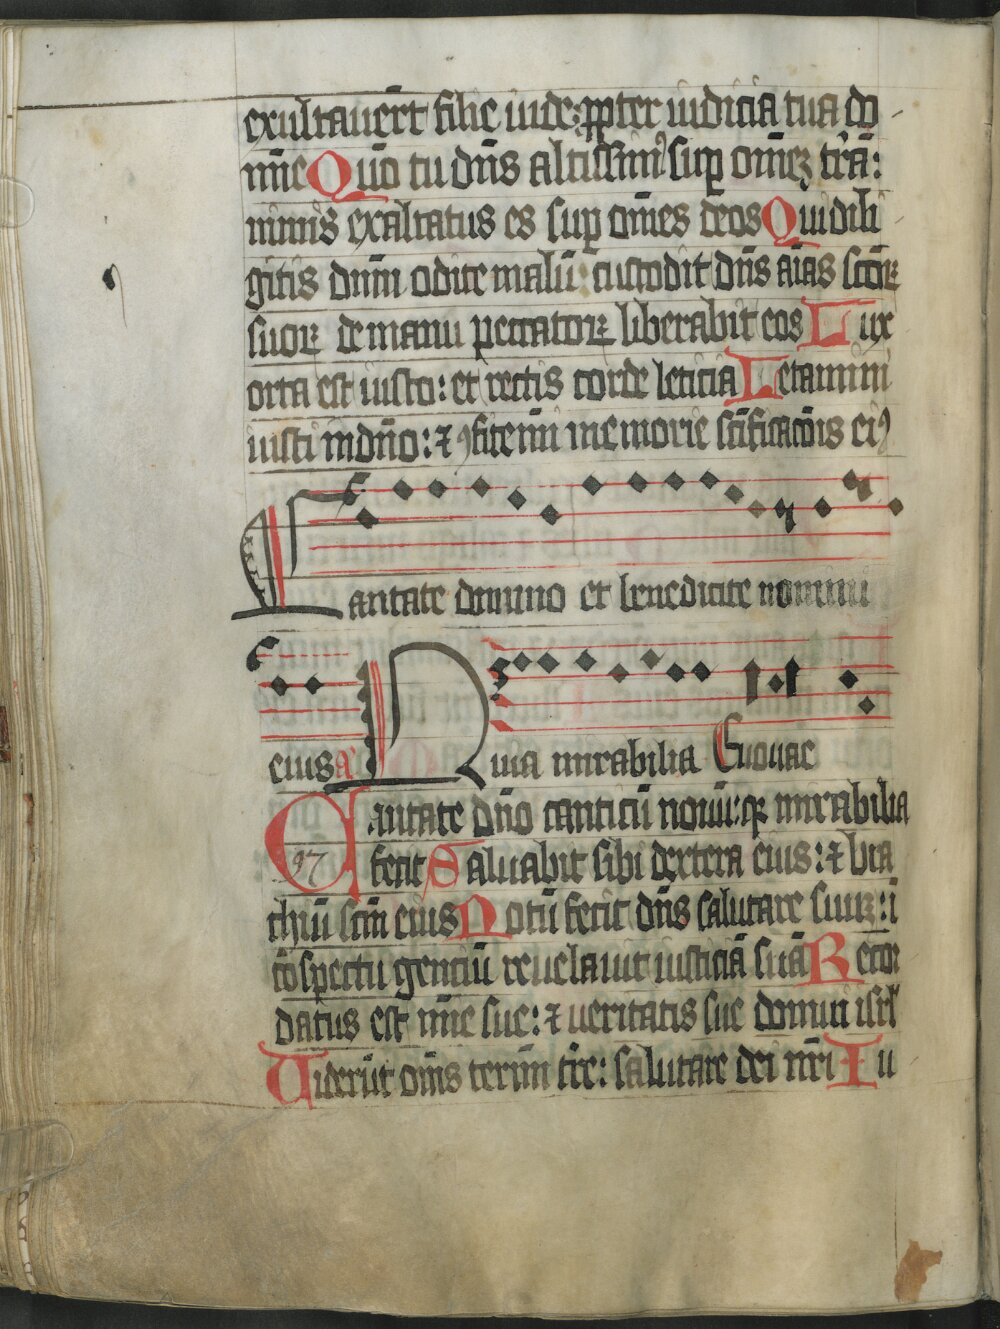 exultauer̄t filie iude: ꝓpter iudicia tua do
mīe Quō tu dn̄s altissimꝰ sup̱ om̄eꝫ tr̄ā:
nimis exaltatus es sup̱ om̄es deos Qui dili
gitis dn̄m odite malū: custodit dn̄s aīas sc̄oꝝ
suoꝝ de manu peccatoꝝ liberabit eos Lux
orta est iusto: et rectis corde leticia Letamini
iusti in dn̄o: ⁊ ꝯfitemī memorie sc̄ificac̄ōis eiꝰ
Cantate domino et benedicite nomini
eius a Quia mirabilia Euouae
Cantate dn̄o canticū nouū: qꝛ mirabilia
97 fecit Saluabit sibi dextera eius: ⁊ bra
chiū sc̄m eius Notū fecit dn̄s salutare suuꝫ: ī
cōspectu genciū reuelauit iusticiā suā Recor
datus est mīe sue: ⁊ ueritatis sue domui isrl̄
Viderūt om̄s termī tr̄e: salutare dei nr̄i Iu